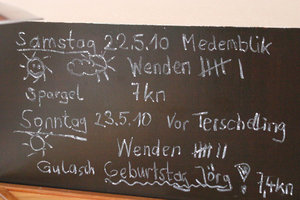 Samstag 22.5.10 Medemblik
Wenden
Spargel 7kn
Sonntag 23.5.10 Vor Terschelling
Wenden
Gulasch Geburtstag Jörg ! 7,4kn